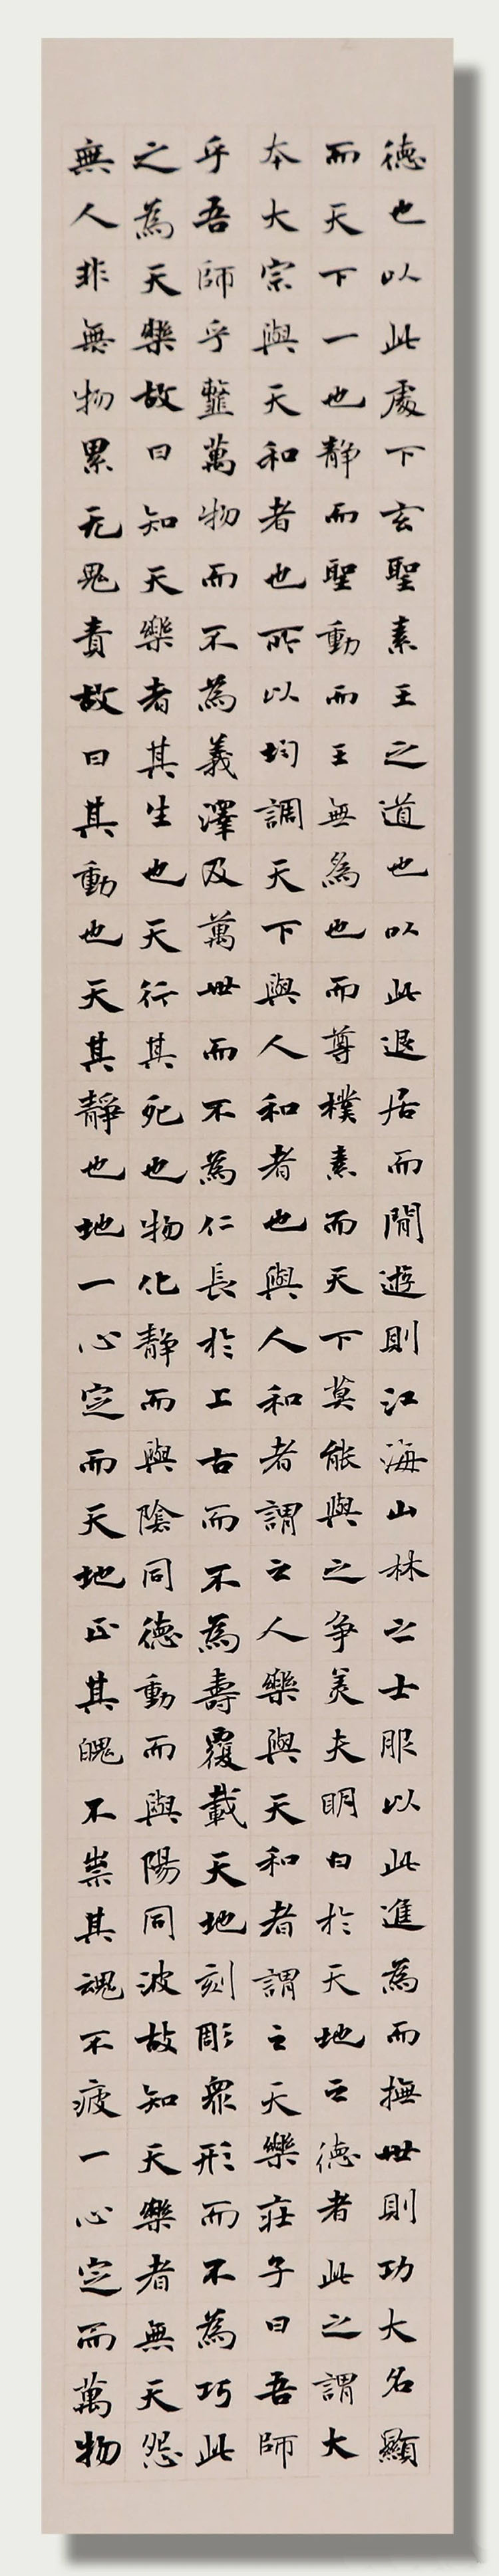 德也以此處下玄聖素王之道也以此退居而閒遊則江海山林之士服以此進為而撫世則功大名顯
而天下一也静而聖動而王無為也而尊樸素而天下莫能與之争美夫明白於天地之德者此之謂大
本大宗與天和者也所以均調天下與人和者也與人和者謂之人樂與天和者謂之天樂莊子曰吾師
乎吾師乎韲萬物而不為義澤及萬世而不為仁長於上古而不為壽覆載天地刻彫衆形而不為巧此
之為天樂故曰知天樂者其生也天行其死也物化静而與陰同德動而與陽同波故知天樂者無天怨
無人非無物累无鬼責故曰其動也天其靜也地一心定而天地正其魄不祟其魂不疲一心定而萬物